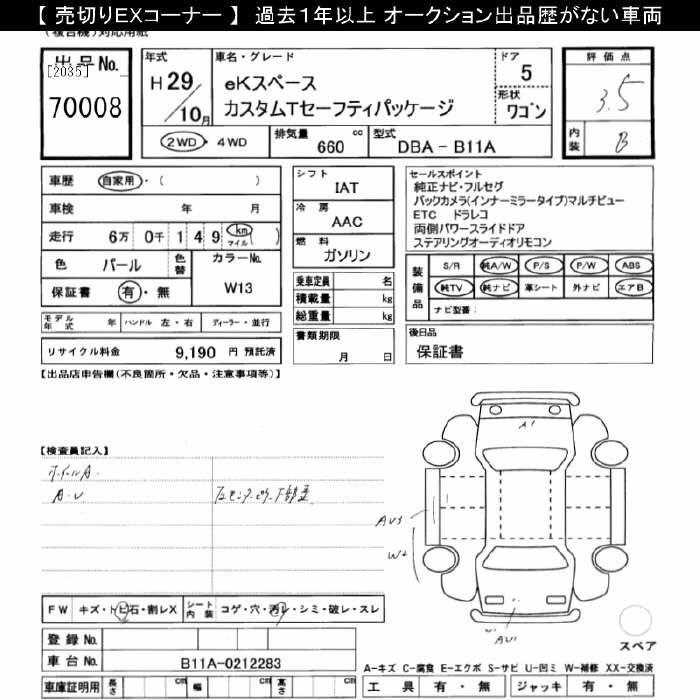 【 売切りEXコーナー 】 過去１年以上 オークション出品歴がない車両
(複合機)対応用紙
出品No.
[2035]
70008
年式
H 29/10月
車名・グレード
eKスペース
カスタムTセーフティパッケージ
ドア
5
形状
ワゴン
2WD ・ 4WD
排気量 660 cc
型式 DBA - B11A
評価点
3.5
内装
B
車歴 自家用・( )
車検 年 月
走行 6万 0千 1 4 9 km マイル ( )
色 パール 色替
カラーNo.
W13
保証書 有・無
モデル年式 年 ハンドル 左・右 ディーラー・並行
リサイクル料金 9,190 円 預託済
シフト
IAT
冷房
AAC
燃料
ガソリン
乗車定員 名
積載量 kg
総重量 kg
書類期限
月 日
セールスポイント
純正ナビ・フルセグ
バックカメラ(インナーミラータイプ)マルチビュー
ETC ドラレコ
両側パワースライドドア
ステアリングオーディオリモコン
装備品
S/R 純A/W P/S P/W ABS
純TV 純ナビ 革シート 外ナビ エアB
ナビ型番:
後日品
保証書
【出品店申告欄(不良箇所・欠品・注意事項等)】
【検査員記入】
ホイールA.
A・U
A1
AU3
W2
AU1
FW キズ・トビ石・割レX
シート内装 コゲ・穴・汚レ・シミ・破レ・スレ
登録No.
車台No. B11A-0212283
車庫証明用 長さ cm 幅 cm 高さ cm
スペア
A-キズ C-腐食 E-エクボ S-サビ U-凹ミ W-補修 XX-交換済
工具 有・無 ジャッキ 有・無